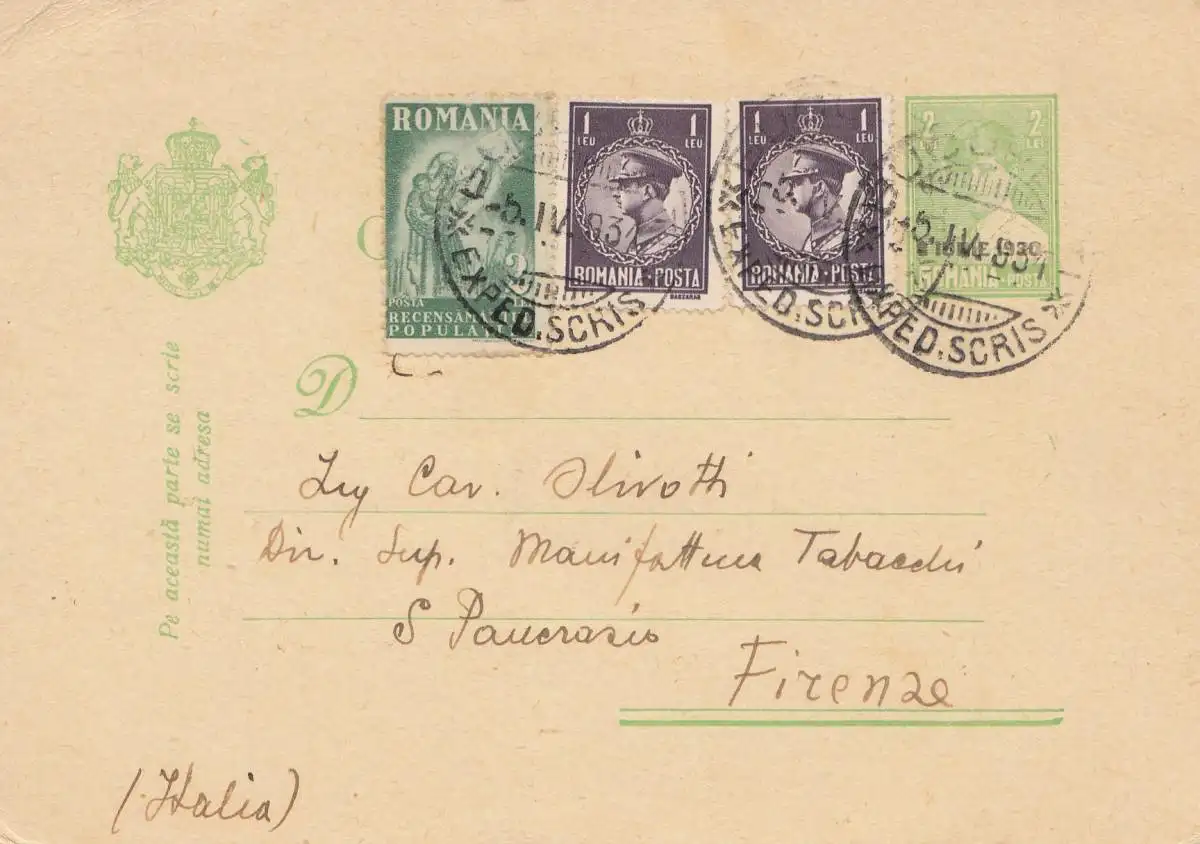 ROMANIA
POSTA 2 LEI
RECENSĂMÂNTUL
POPULAȚIEI
1 LEU 1 LEU
ROMANIA·POSTA
BASARAB
1 LEU 1 LEU
ROMANIA·POSTA
2 LEI 2 LEI
8 IUNIE 1930
ROMANIA·POSTA
-5.IV.931
EXPED.SCRIS
EXPED.SCRIS
-5.IV.931
EXPED.SCRIS
C
D
Pe această parte se scrie
numai adresa
Ing Cav. Olivotti
Dir. Sup. Manifattura Tabacchi
S Pancrazio
Firenze
(Italia)